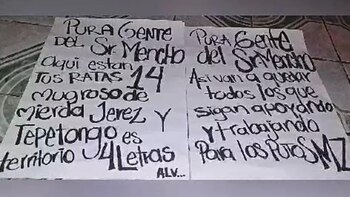 PURA GENTE
DEL Sr. MENCHO
Aqui estan
TUS RATAS 14
mugroso de
mierda Jerez y
Tepetongo es
territorio 4Letras
ALV...
PURA Gente
del Sr Mencho
Asi van a quedar
todos los que
sigan apoyando
y trabajando
Para los Putos MZ